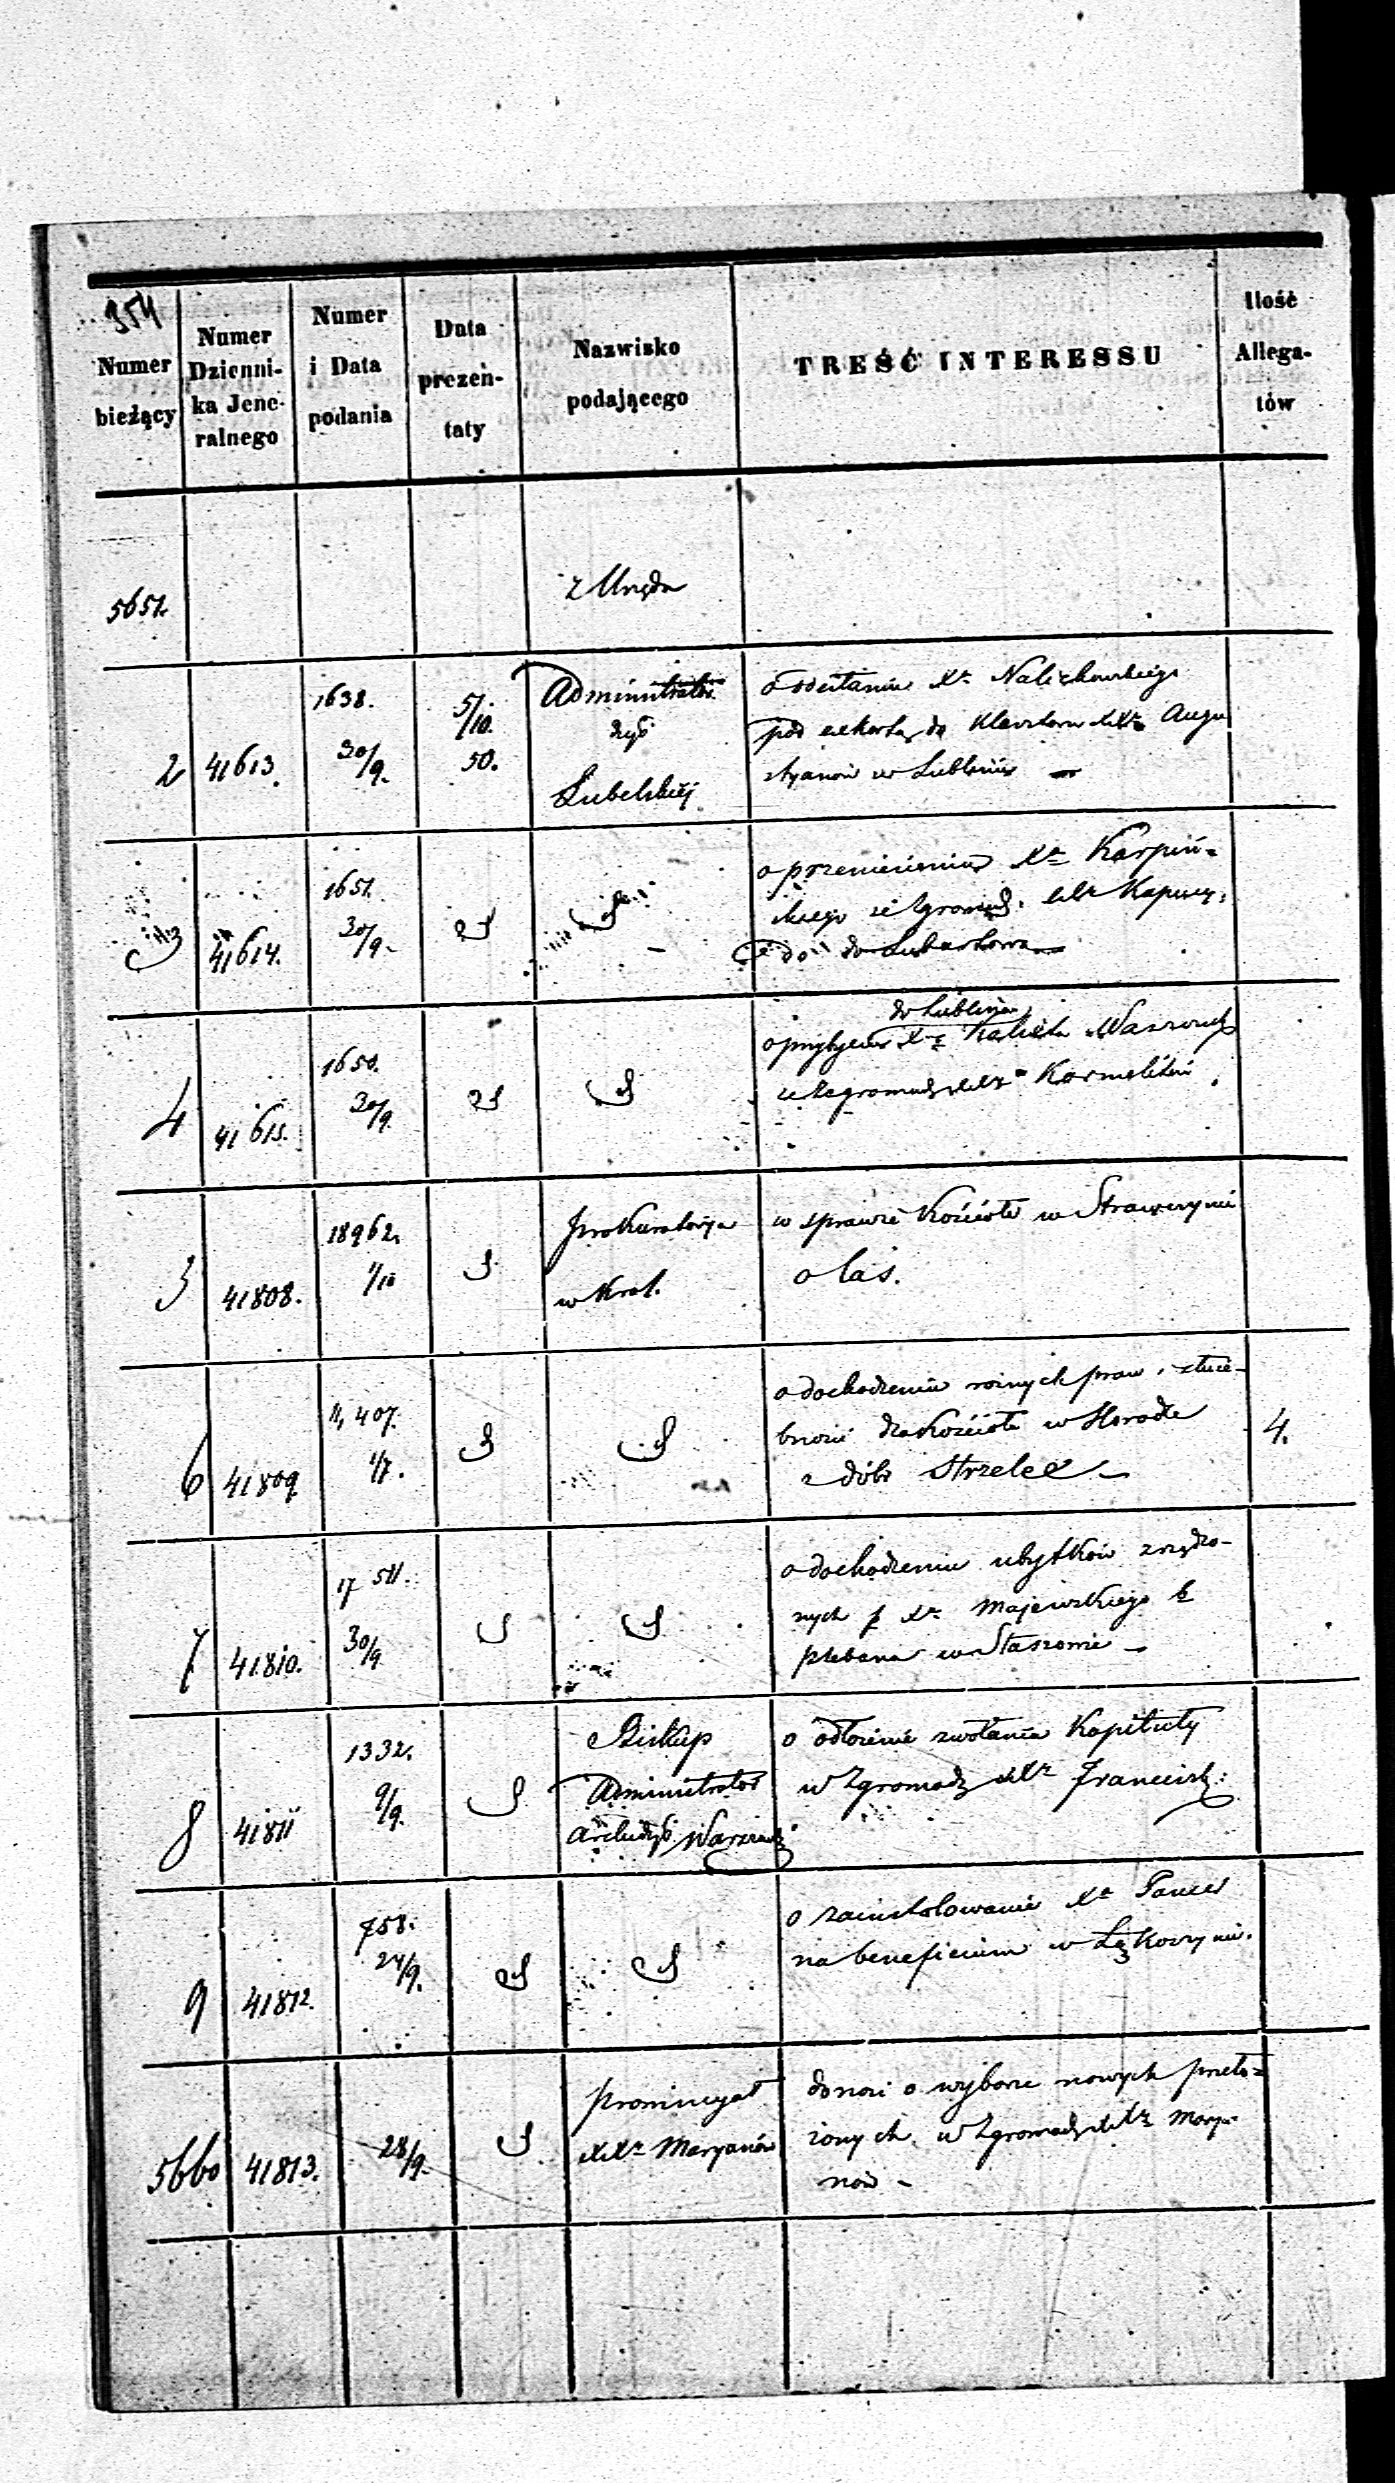 354
Numer bieżący
Numer Dzienni-ka Jene-ralnego
Numer i Data podania
Data prezen-taty
Nazwisko podającego
TREŚĆ INTERESSU
Ilość Allega-tów
5651. z Urzędu
2 41613. 1638. 30/9. 5/10. 50. Administrator
dyec
Lubelskiej
o odesłaniu Xa Nalichowskiego
pod eskortą do Klasztoru XXa Augu
styanów w Lublinie —
3 41614. 1651. 30/9. o przeniesieniu Xa Karpiń-
skiego ze Zgromad. XXa Kapucy.
do Lubartowa
4 41615. 1650. 30/9.
do Lublina
o przybyciu Xa
ze Zgromadz XXa Karmelitów
5 41808. 18962. 1/10 Prokuratorya
w Krol.
w sprawie Kościoła w
o las.
6 41809 11,407. 1/7.
o dochodzeniu roznych praw i służe-
bnosci dla Kościoła w Horodle
z dóbr Strzelce — 4.
7 41810. 17 511. 30/9
o dochodzeniu ubytków zrządzo-
nych p Xa Majewskiego b
plebana w Staszowie —
8 41811 1332. 9/9. Biskup
Administrator
Archidyec Warszaw
o odłożenie zwołania Kapituły
w Zgromadz XXa Francisz:
9 41812. 758. 24/9.
o zainstalowanie Xa
na beneficium w
5660 41813. 28/9. Prowincyał
XXa Maryanów
donosi o wyborze nowych przeło-
żonych w Zgromadz XXa Marya-
nów —